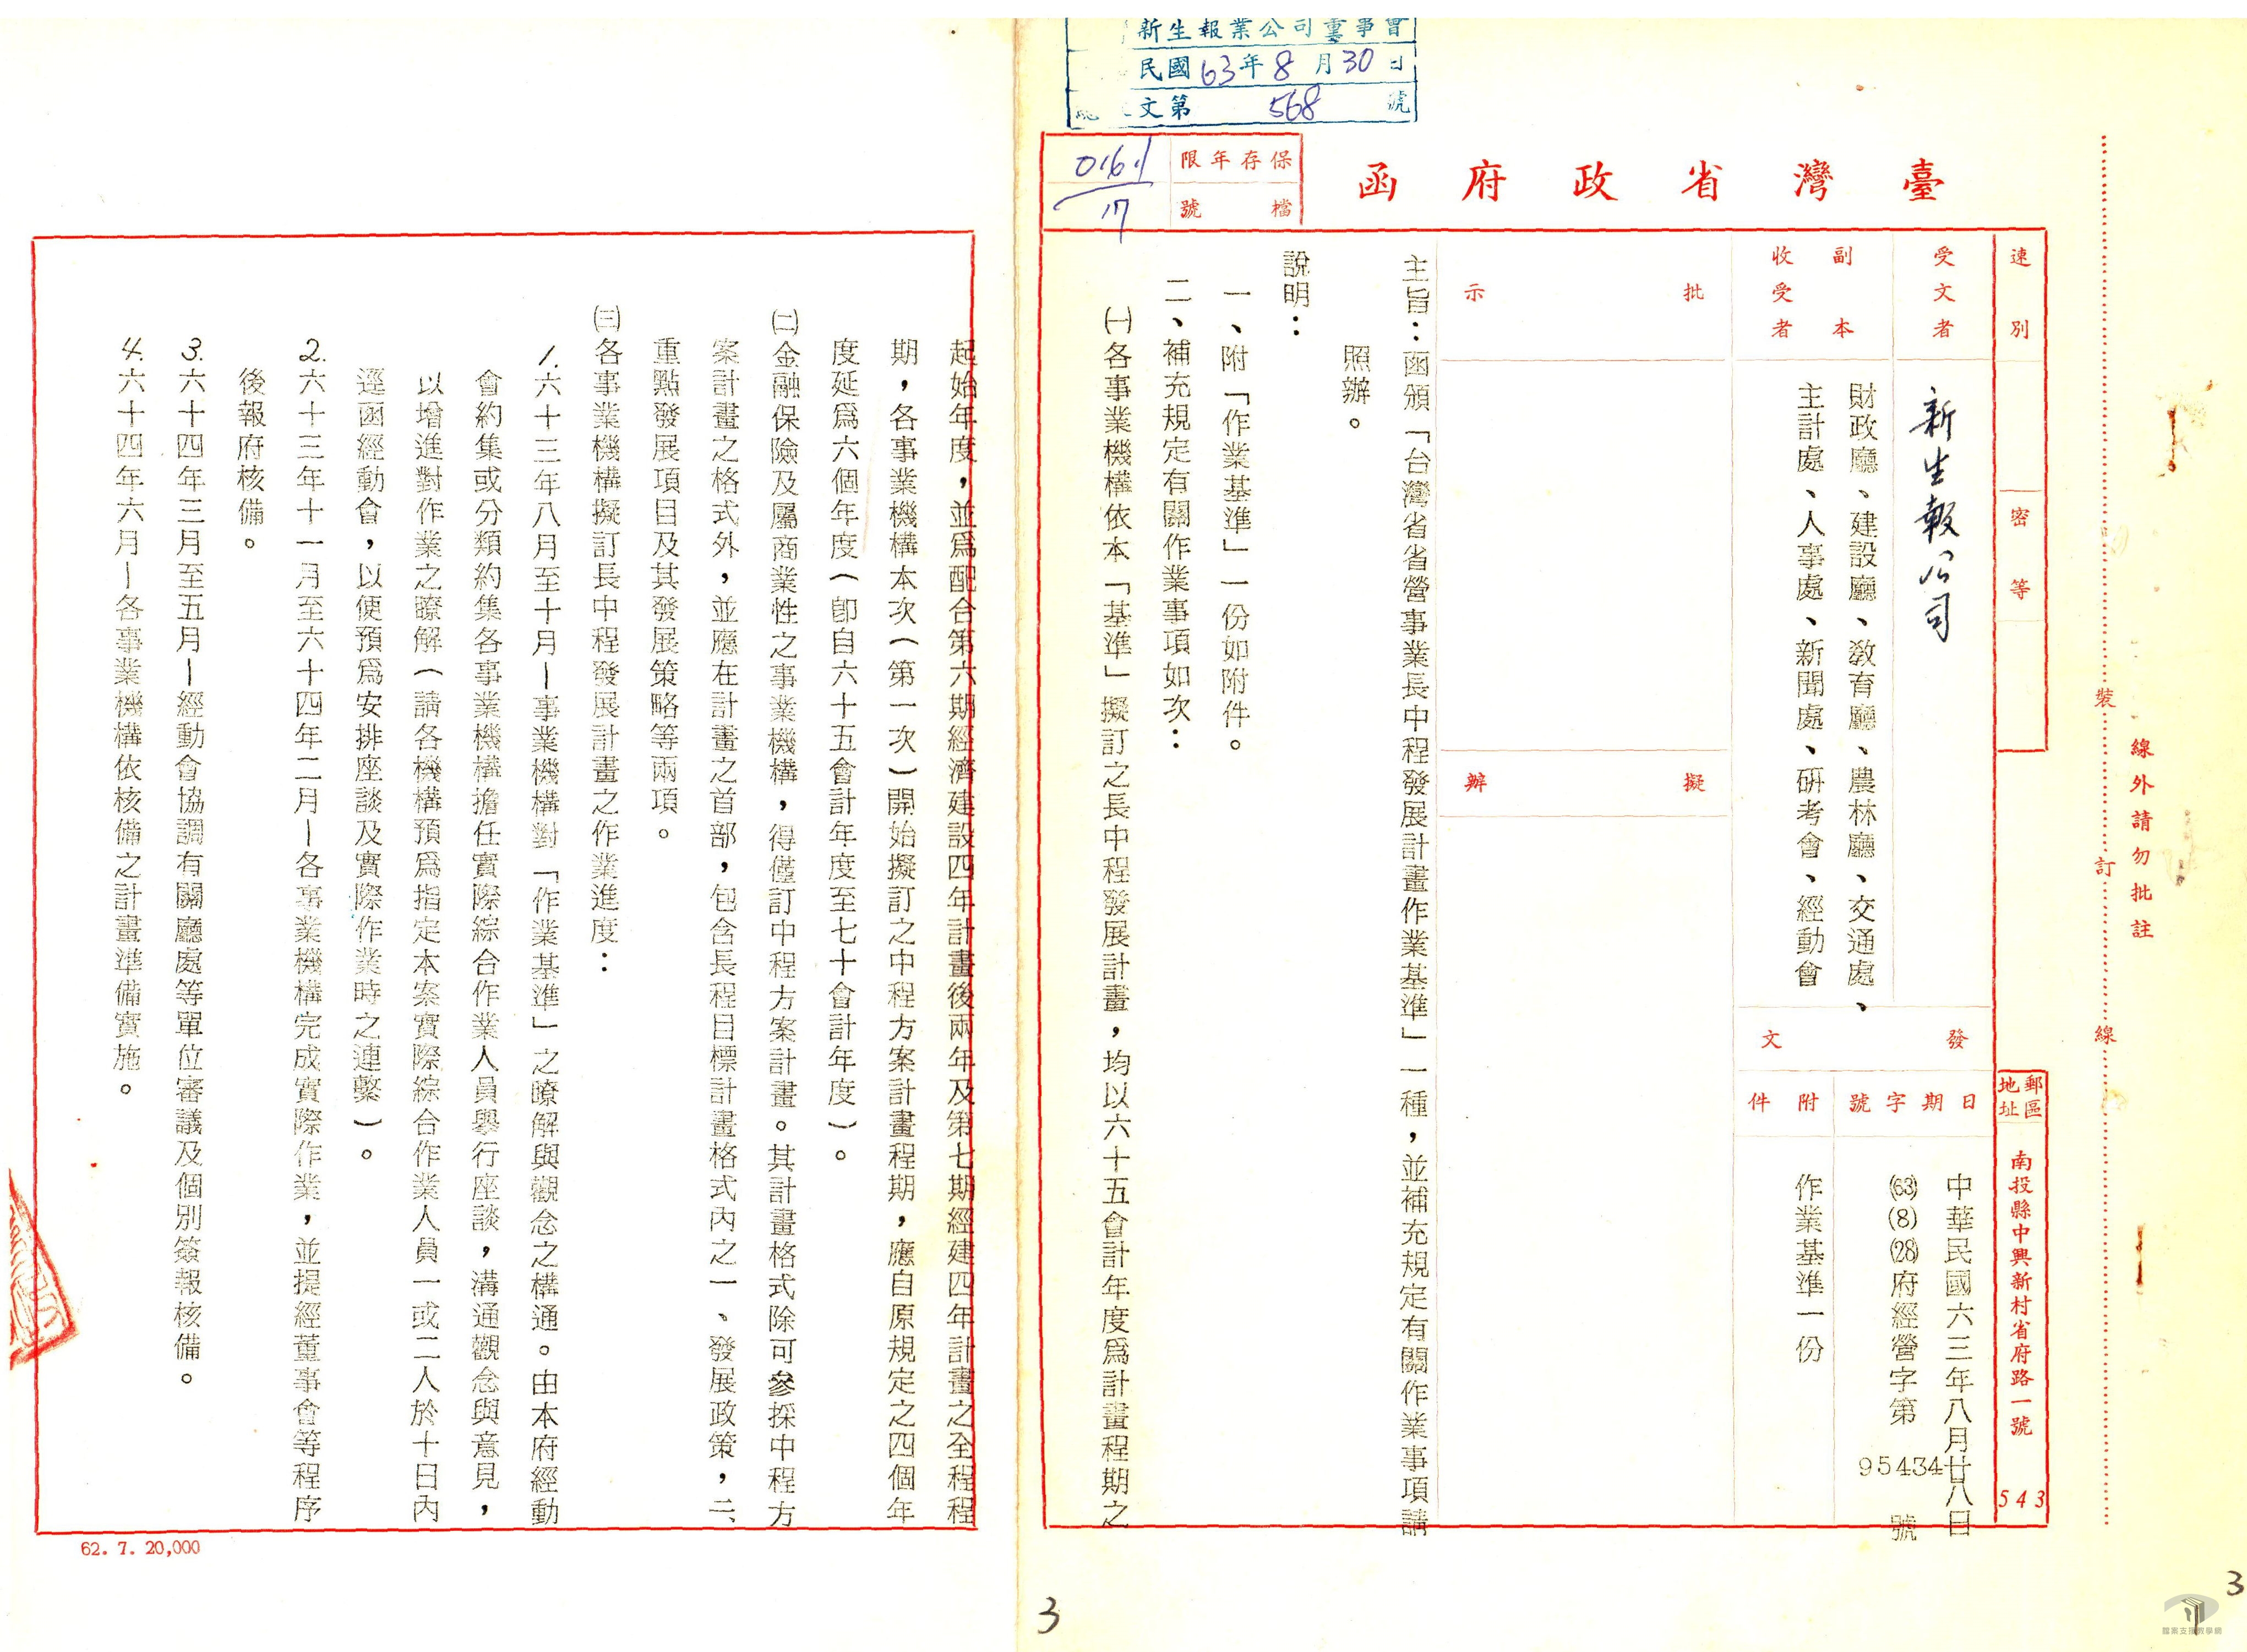 新生報業公司董事會
民國63年8月30日
文第568號
保存年限
檔號
016.1/17
臺灣省政府函
速別
密等
受文者
新生報公司
副本收受者
財政廳、建設廳、教育廳、農林廳、交通處、
主計處、人事處、新聞處、研考會、經動會
批示
擬辦
發文
日期字號
附件
中華民國六三年八月廿八日
(63)(8)(28)府經營字第95434號
作業基準一份
郵區地址
南投縣中興新村省府路一號
543
裝訂線
線外請勿批註
主旨：函頒「台灣省省營事業長中程發展計畫作業基準」一種，並補充規定有關作業事項請
照辦。
說明：
一、附「作業基準」一份如附件。
二、補充規定有關作業事項如次：
㈠各事業機構依本「基準」擬訂之長中程發展計畫，均以六十五會計年度爲計畫程期之
起始年度，並爲配合第六期經濟建設四年計畫後兩年及第七期經建四年計畫之全程程
期，各事業機構本次（第一次）開始擬訂之中程方案計畫程期，應自原規定之四個年
度延爲六個年度（卽自六十五會計年度至七十會計年度）。
㈡金融保險及屬商業性之事業機構，得僅訂中程方案計畫。其計畫格式除可參採中程方
案計畫之格式外，並應在計畫之首部，包含長程目標計畫格式內之一、發展政策，二、
重點發展項目及其發展策略等兩項。
㈢各事業機構擬訂長中程發展計畫之作業進度：
1.六十三年八月至十月—事業機構對「作業基準」之瞭解與觀念之構通。由本府經動
會約集或分類約集各事業機構擔任實際綜合作業人員舉行座談，溝通觀念與意見，
以增進對作業之瞭解（請各機構預爲指定本案實際綜合作業人員一或二人於十日內
逕函經動會，以便預爲安排座談及實際作業時之連繫）。
2.六十三年十一月至六十四年二月—各事業機構完成實際作業，並提經董事會等程序
後報府核備。
3.六十四年三月至五月—經動會協調有關廳處等單位審議及個別簽報核備。
4.六十四年六月—各事業機構依核備之計畫準備實施。
62. 7. 20,000
3
3
檔案支援教學網